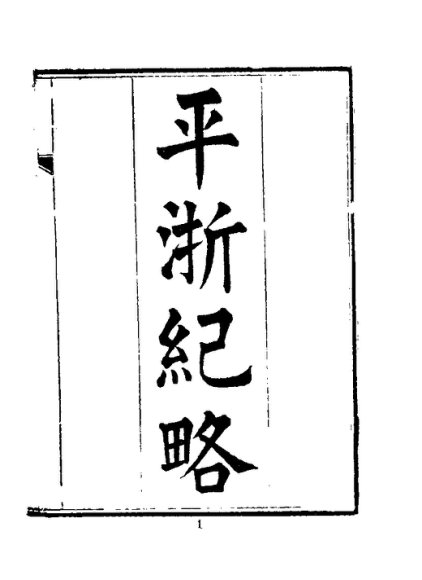 平浙紀略
1